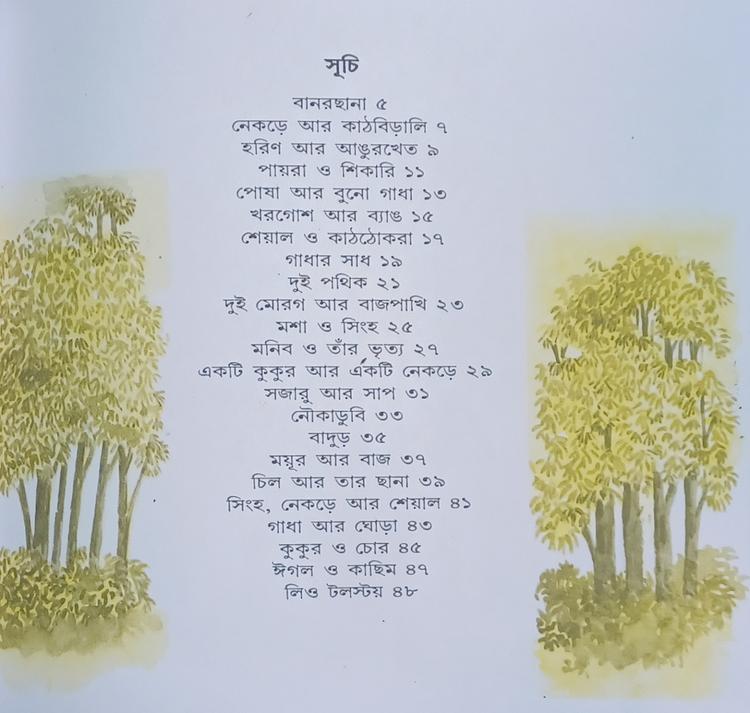 সূচি
বানরছানা ৫
নেকড়ে আর কাঠবিড়ালি ৭
হরিণ আর আঙুরখেত ৯
পায়রা ও শিকারি ১১
পোষা আর বুনো গাধা ১৩
খরগোশ আর ব্যাঙ ১৫
শেয়াল ও কাঠঠোকরা ১৭
গাধার সাধ ১৯
দুই পথিক ২১
দুই মোরগ আর বাজপাখি ২৩
মশা ও সিংহ ২৫
মনিব ও তাঁর ভৃত্য ২৭
একটি কুকুর আর একটি নেকড়ে ২৯
সজারু আর সাপ ৩১
নৌকাডুবি ৩৩
বাদুড় ৩৫
ময়ূর আর বাজ ৩৭
চিল আর তার ছানা ৩৯
সিংহ, নেকড়ে আর শেয়াল ৪১
গাধা আর ঘোড়া ৪৩
কুকুর ও চোর ৪৫
ঈগল ও কাছিম ৪৭
লিও টলস্টয় ৪৮